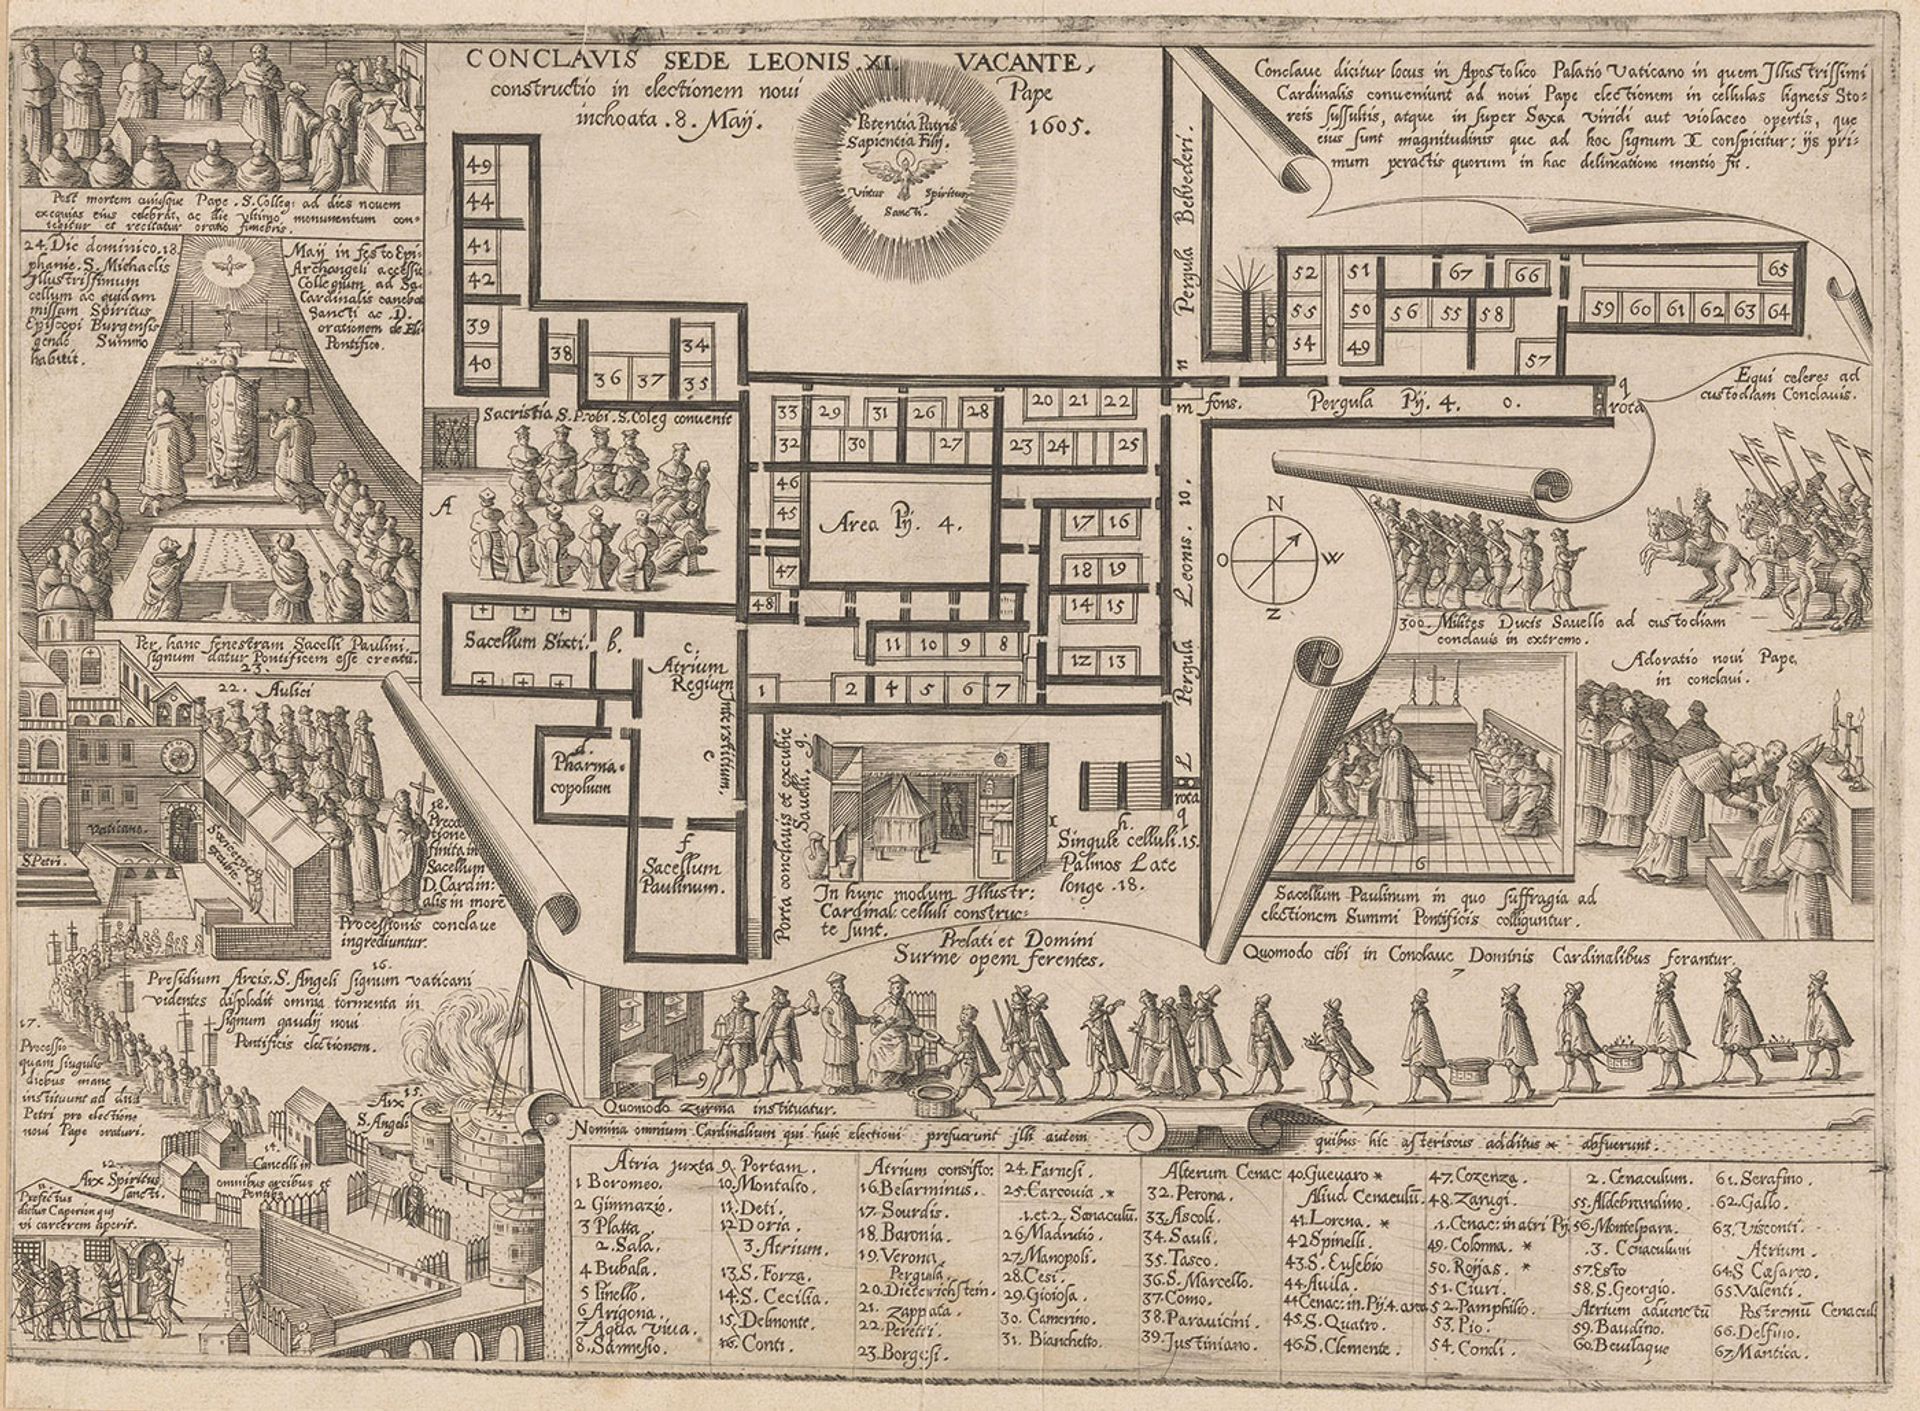 CONCLAVIS SEDE LEONIS .XI. VACANTE,
constructio in electionem noui Pape
inchoata .8. Maij. 1605.
Potentia Patris
Sapientia Filij.
Virtus Spiritus
Sancti.
Conclaue dicitur locus in Apostolico Palatio Vaticano in quem Jllustrissimi
Cardinalis conueniunt ad noui Pape electionem in cellulas ligneis Sto-
reis suffultis, atque in super Saxa viridi aut violaceo opertis, que
eius sunt magnitudinis que ad hoc signum conspicitur: ijs pri-
mum peractis quorum in hac delineatione mentio fit.
Post mortem cuiusque Pape .S. Colleg: ad dies nouem
exequias eius celebrat, ac die vltimo monumentum con-
tegitur et recitatur oratio funebris.
24. Die dominico .18.
phanie. S. Michaelis
Jllustrissimum
cellum ac quidam
missam Spiritus
Episcopi Burgensis
gende Summo
habuit.
Maij in festo Epi-
Archangeli accessit
Collegium ad Sa-
Cardinalis canebat
Sancti ac .D.
orationem de Eli
Pontifice.
Per hanc fenestram Sacelli Paulini
signum datur Pontificem esse creatū.
23.
22. Aulici
Vaticano.
S. Petri.
18.
Preca
tione
finita in
Sacellum
D. Cardin-
alis in more
Processionis conclaue
ingrediuntur.
16.
Presidium Arcis .S. Angeli signum vaticani
videntes displodit omnia tormenta in
signum gaudij noui
Pontificis electionem.
17.
Processio
quam singulis
diebus mane
instituunt ad diui
Petri pro electione
noui Pape oraturi.
Arx 15.
S. Angeli
14.
Cancelli in
omnibus arcibus et
12.
Arx Spiritus
Sancti.
Prefectus
dictus Caperion qui
vi carcerem aperit.
49
44
41
42
39
40
38
36 37
34
35
Sacristia S. Probi .S. Coleg conuenit
A
33 29 31 26 28
32 30 27
20 21 22
23 24 25
46
45
47
48
Area Pij. 4.
17 16
18 19
14 15
12 13
11 10 9 8
1 2 4 5 6 7
Sacellum Sixti. b.
c.
Atrium
Regium
Interstitium.
e
d.
Pharma-
copolium
f
Sacellum
Paulinum.
Porta conclauis et excubie
Sauelli. g.
In hunc modum Jllustr:
Cardinal: celluli construc-
te sunt.
h.
Singule celluli .15.
Palmos Late
longe .18.
Pergula Belvederi.
n
m
fons.
Pergula Pij. 4. o.
q
rota
Pergula Leonis. 10.
L
rota
q
52 51 67 66 65
55 50 56 55 58
54 49 57
59 60 61 62 63 64
N
O W
Z
Equi celeres ad
custodiam Conclauis.
300. Milites Ducis Sauello ad custodiam
conclauis in extremo.
Adoratio noui Pape,
in conclaui.
6
Sacellum Paulinum in quo suffragia ad
electionem Summi Pontificis colliguntur.
Prelati et Domini
Surme opem ferentes.
Quomodo cibi in Conclaue Dominis Cardinalibus ferantur.
7
9
Quomodo zurma instituatur.
Nomina omnium Cardinalium qui huic electioni prefuerunt illi autem quibus hic asteriscus additus * abfuerunt.
Atria juxta
1 Boromeo.
2 Gimnazio.
3 Platta
2. Sala.
4 Bubala.
5 Pinello.
6 Arigona.
7 Aqua Viua.
8. Sannesio.
9. Portam.
10. Montalto.
11. Deti.
12 Doria.
3. Atrium.
13. S. Forza.
14. S. Cecilia.
15. Delmonte.
16. Conti.
Atrium consisto:
16. Belarminus.
17. Sourdis.
18. Baronia.
19. Verona.
Pergula.
20. Dietewrichstein.
21. Zappata.
22. Peretti.
23. Borgesi.
24. Farnesi.
25. Carcouia. *
1. et. 2. Sanaculū.
26 Madrutio.
27. Manopoli.
28. Cesi.
29. Gioiosa.
30. Camerino.
31. Bianchetto.
Alterum Cenac
32. Perona.
33. Ascoli.
34. Sauli.
35. Tasco.
36. S. Marcello.
37. Como.
38. Parauicini.
39. Justiniano.
40. Gueuaro *
Aliud Cenaculū.
41. Lorena. *
42 Spinelli.
43. S. Eusebio
44. Auila.
44 Cenac: in Pij. 4. area
45. S. Quatro.
46. S. Clemente.
47. Cozenza.
48. Zarugi.
.1. Cenac: in atri Pij
49. Colonna. *
50. Roijas. *
51. Ciuri.
52. Pamphilio.
53. Pio.
54. Condi.
2. Cenaculum.
55. Aldebrandino.
56. Montelpara.
.3. Cenaculum
57. Esto
58. S. Georgio.
Atrium adiunctū
59. Baudino.
60. Beuilaque
61. Serafino.
62. Gallo.
63. Visconti.
Atrium.
64. S Cæsareo.
65. Valenti.
Postremū Cenaculi
66. Delfino.
67. Mantica.